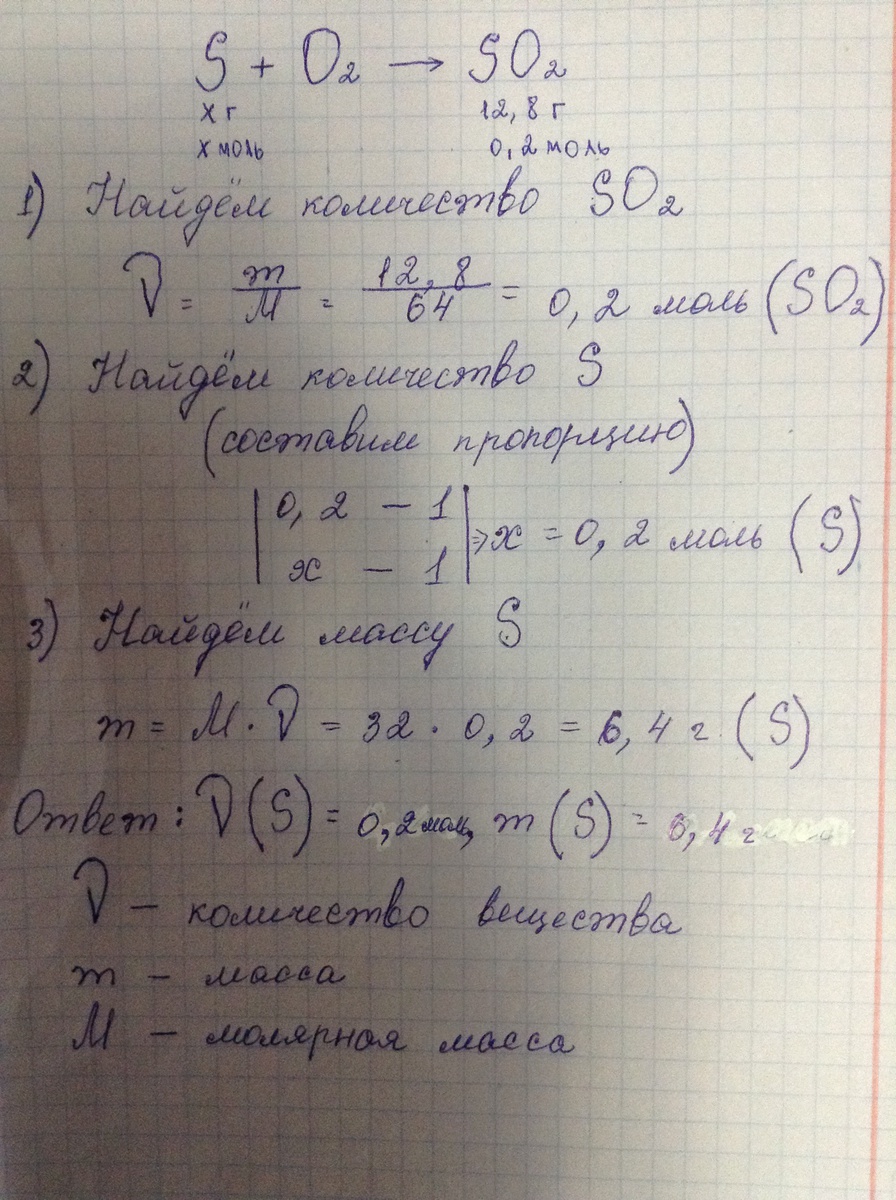 S + O₂ → SO₂
х г 12,8 г
х моль 0,2 моль
1) Найдём количество SO₂
ν = m/M = 12,8/64 = 0,2 моль (SO₂)
2) Найдём количество S
(составим пропорцию)
| 0,2 – 1 |
| x – 1 | ⇒ x = 0,2 моль (S)
3) Найдём массу S
m = M · ν = 32 · 0,2 = 6,4 г (S)
Ответ: ν(S) = 0,2 моль, m (S) = 6,4 г
ν – количество вещества
m – масса
M – молярная масса